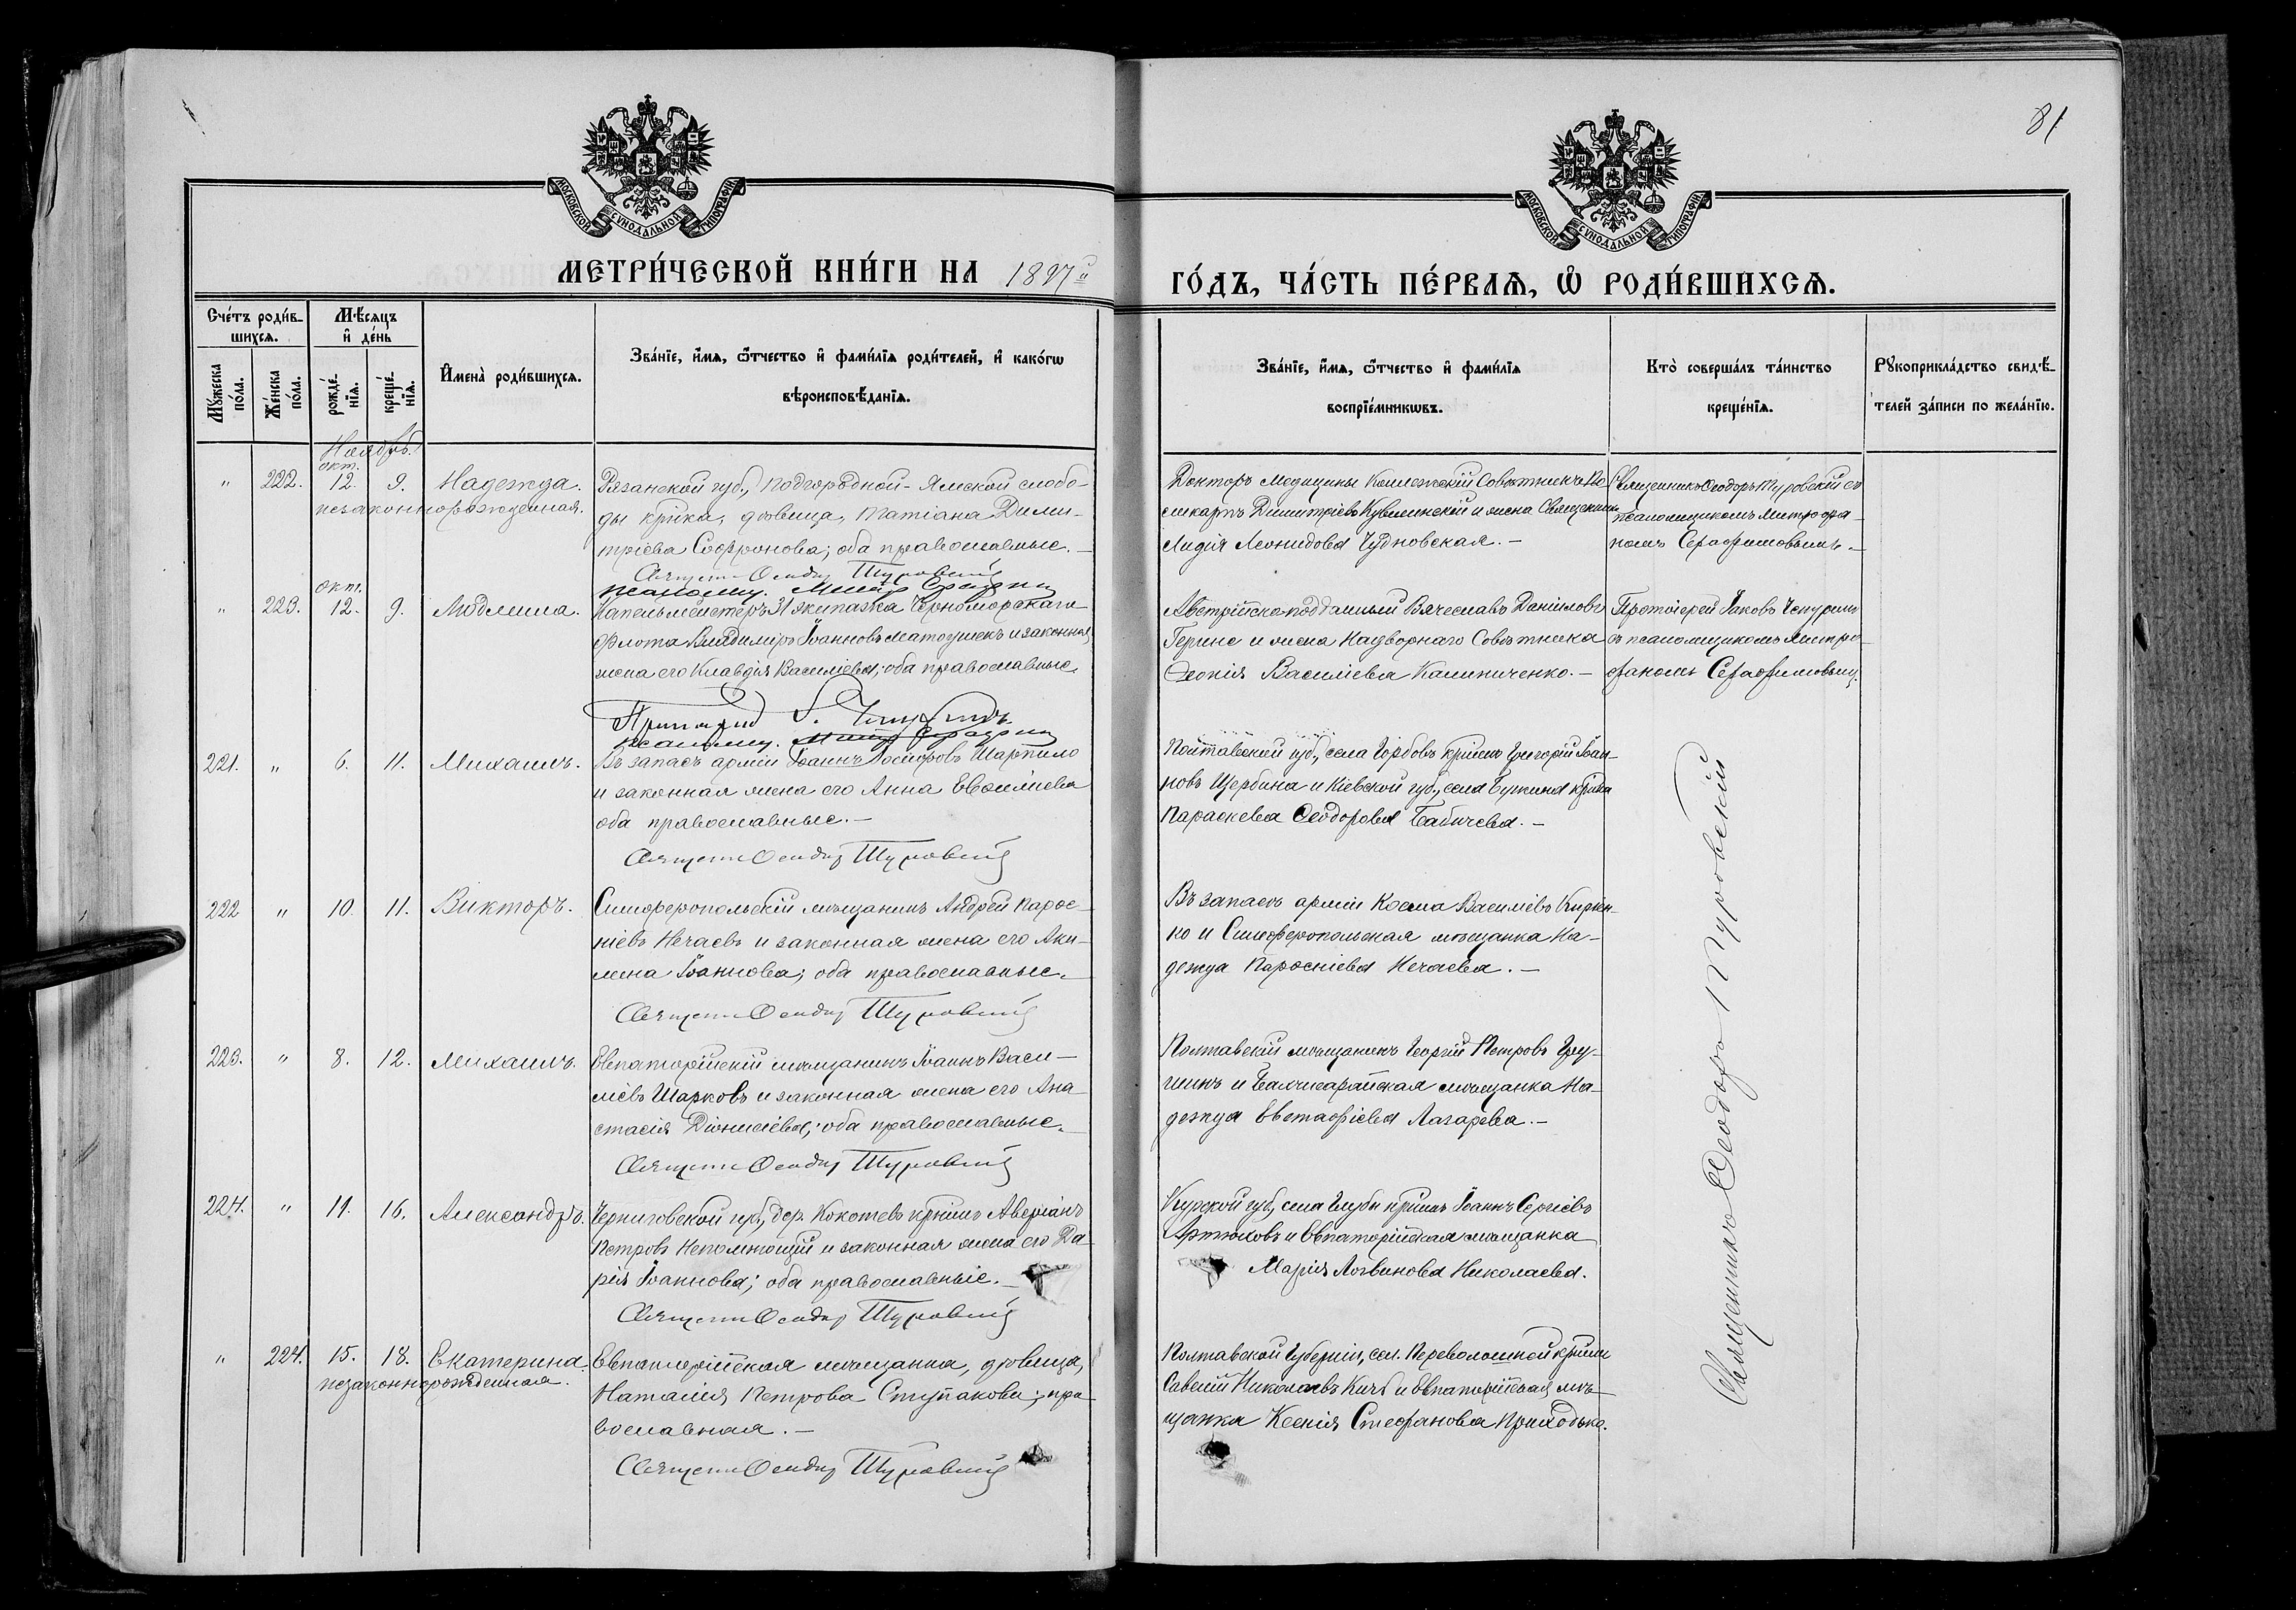 81
МОСКОВСКОЙ СѴНОДАЛЬНОЙ ТИПОГРАФІИ
МОСКОВСКОЙ СѴНОДАЛЬНОЙ ТИПОГРАФІИ
МЕТРИ́ЧЕСКОЙ КНИ́ГИ НА 1897й ГО́ДЪ, ЧА́СТЬ ПЕ́РВАѦ, Ѡ҆ РОДИ́ВШИХСѦ.
Сче́тъ роди́в-
шихсѧ.
Мꙋ́жеска
по́ла.
Же́нска
по́ла.
Мѣ́сѧцъ
и҆ де́нь
рожде́-
нїѧ.
креще́-
нїѧ.
И҆мена̀ роди́вшихсѧ.
Зва́нїе, и҆́мѧ, ѻ҆́тчество и҆ фами́лїѧ роди́телей, и҆ како́гѡ
вѣроисповѣ́данїѧ.
Зва́нїе, и҆́мѧ, ѻ҆́тчество и҆ фами́лїѧ
воспрїе́мникѡвъ.
Кто̀ соверша́лъ та́инство
креще́нїѧ.
Рꙋкоприкла́дство свидѣ́-
телей за́писи по жела́нїю.
Ноябрь.
окт.
" 222. 12. 9. Надежда.
незаконнорожденная.
Рязанской губ., Подгородной-Ямской слобо-
ды кр-ка, девица, Татіана Дими-
тріева Софронова; оба православные.-
Священ. Ѳеодор Туровскій
псаломщ. Митр. Серафим
Докторъ Медицины Коллежскій Совѣтникъ По
ликарпъ Димитріевъ Кувилинскій и жена Священника
Лидія Леонидова Чудновская.-
Священникъ Ѳеодоръ Туровскій съ
псаломщикомъ Митрофа-
номъ Серафимовымъ.-
окт.
" 223. 12. 9. Людмила.
Капельмейстеръ 31 экипажа Черноморскаго
флота Владиміръ Іоанновъ Матоушекъ и законная
жена его Клавдія Василіева; оба православные.
Протоіерей І. Чепуринъ
псаломщ. Митр. Серафим
Австрійско-подданный Вячеславъ Даніиловъ
Геринс и жена Надворнаго Совѣтника
Ѳеонія Василіева Калиниченко.-
Протоіерей Іаковъ Чепуринъ
съ псаломщикомъ Митро
фаномъ Серафимовымъ.
221. " 6. 11. Михаилъ.
Въ запасѣ арміи Іоаннъ Іосифовъ Шарпило
и законная жена его Анна Евсиліева
оба православные.-
Священ. Ѳеодор Туровскій
Полтавской губ., села Горбовъ кр-нинъ Григорій Іоан-
новъ Щербина и Кіевской губ., села Бужина кр-нка
Параскева Ѳеодорова Бабичева.-
222 " 10. 11. Викторъ.
Симферопольскій мѣщанинъ Андрей Парѳе-
ніевъ Нечаевъ и законная жена его Аки-
лина Іоаннова; оба православные.
Священ. Ѳеодор Туровскій
Въ запасѣ арміи Косма Василіевъ Кирьен-
ко и Симферопольская мѣщанка На-
дежда Парѳеніева Нечаева.-
223. " 8. 12. Михаилъ.
Евпаторійскій мѣщанинъ Іоаннъ Васи-
ліевъ Шарковъ и законная жена его Ана-
стасія Діонисіева; оба православные.
Священ. Ѳеодор Туровскій
Полтавскій мѣщанинъ Георгій Петровъ
и Бахчисарайская мѣщанка На-
дежда Евстафіева Лазарева.-
224. " 11. 16. Александръ.
Черниговской губ., дер. Кокотевъ кр-нинъ Аверіанъ
Петровъ Непомнющій и законная жена его Да-
рія Іоаннова; оба православные.-
Священ. Ѳеодор Туровскій
Курской губ., села кр-нинъ Іоаннъ Сергіевъ
Артюховъ и Евпаторійская мѣщанка
Марія Логвинова Николаева.
" 224. 15. 18. Екатерина.
незаконнорожденная.
Евпаторійская мѣщанка, девица,
Наталія Петрова Ступакова; пра-
вославная.-
Священ. Ѳеодор Туровскій
Полтавской Губерніи, сел. Переволочной кр-нинъ
Савелій Николаевъ и Евпаторійская мѣ-
щанка Ксенія Стефанова Приходько.
Священникъ Ѳеодоръ Туровскій